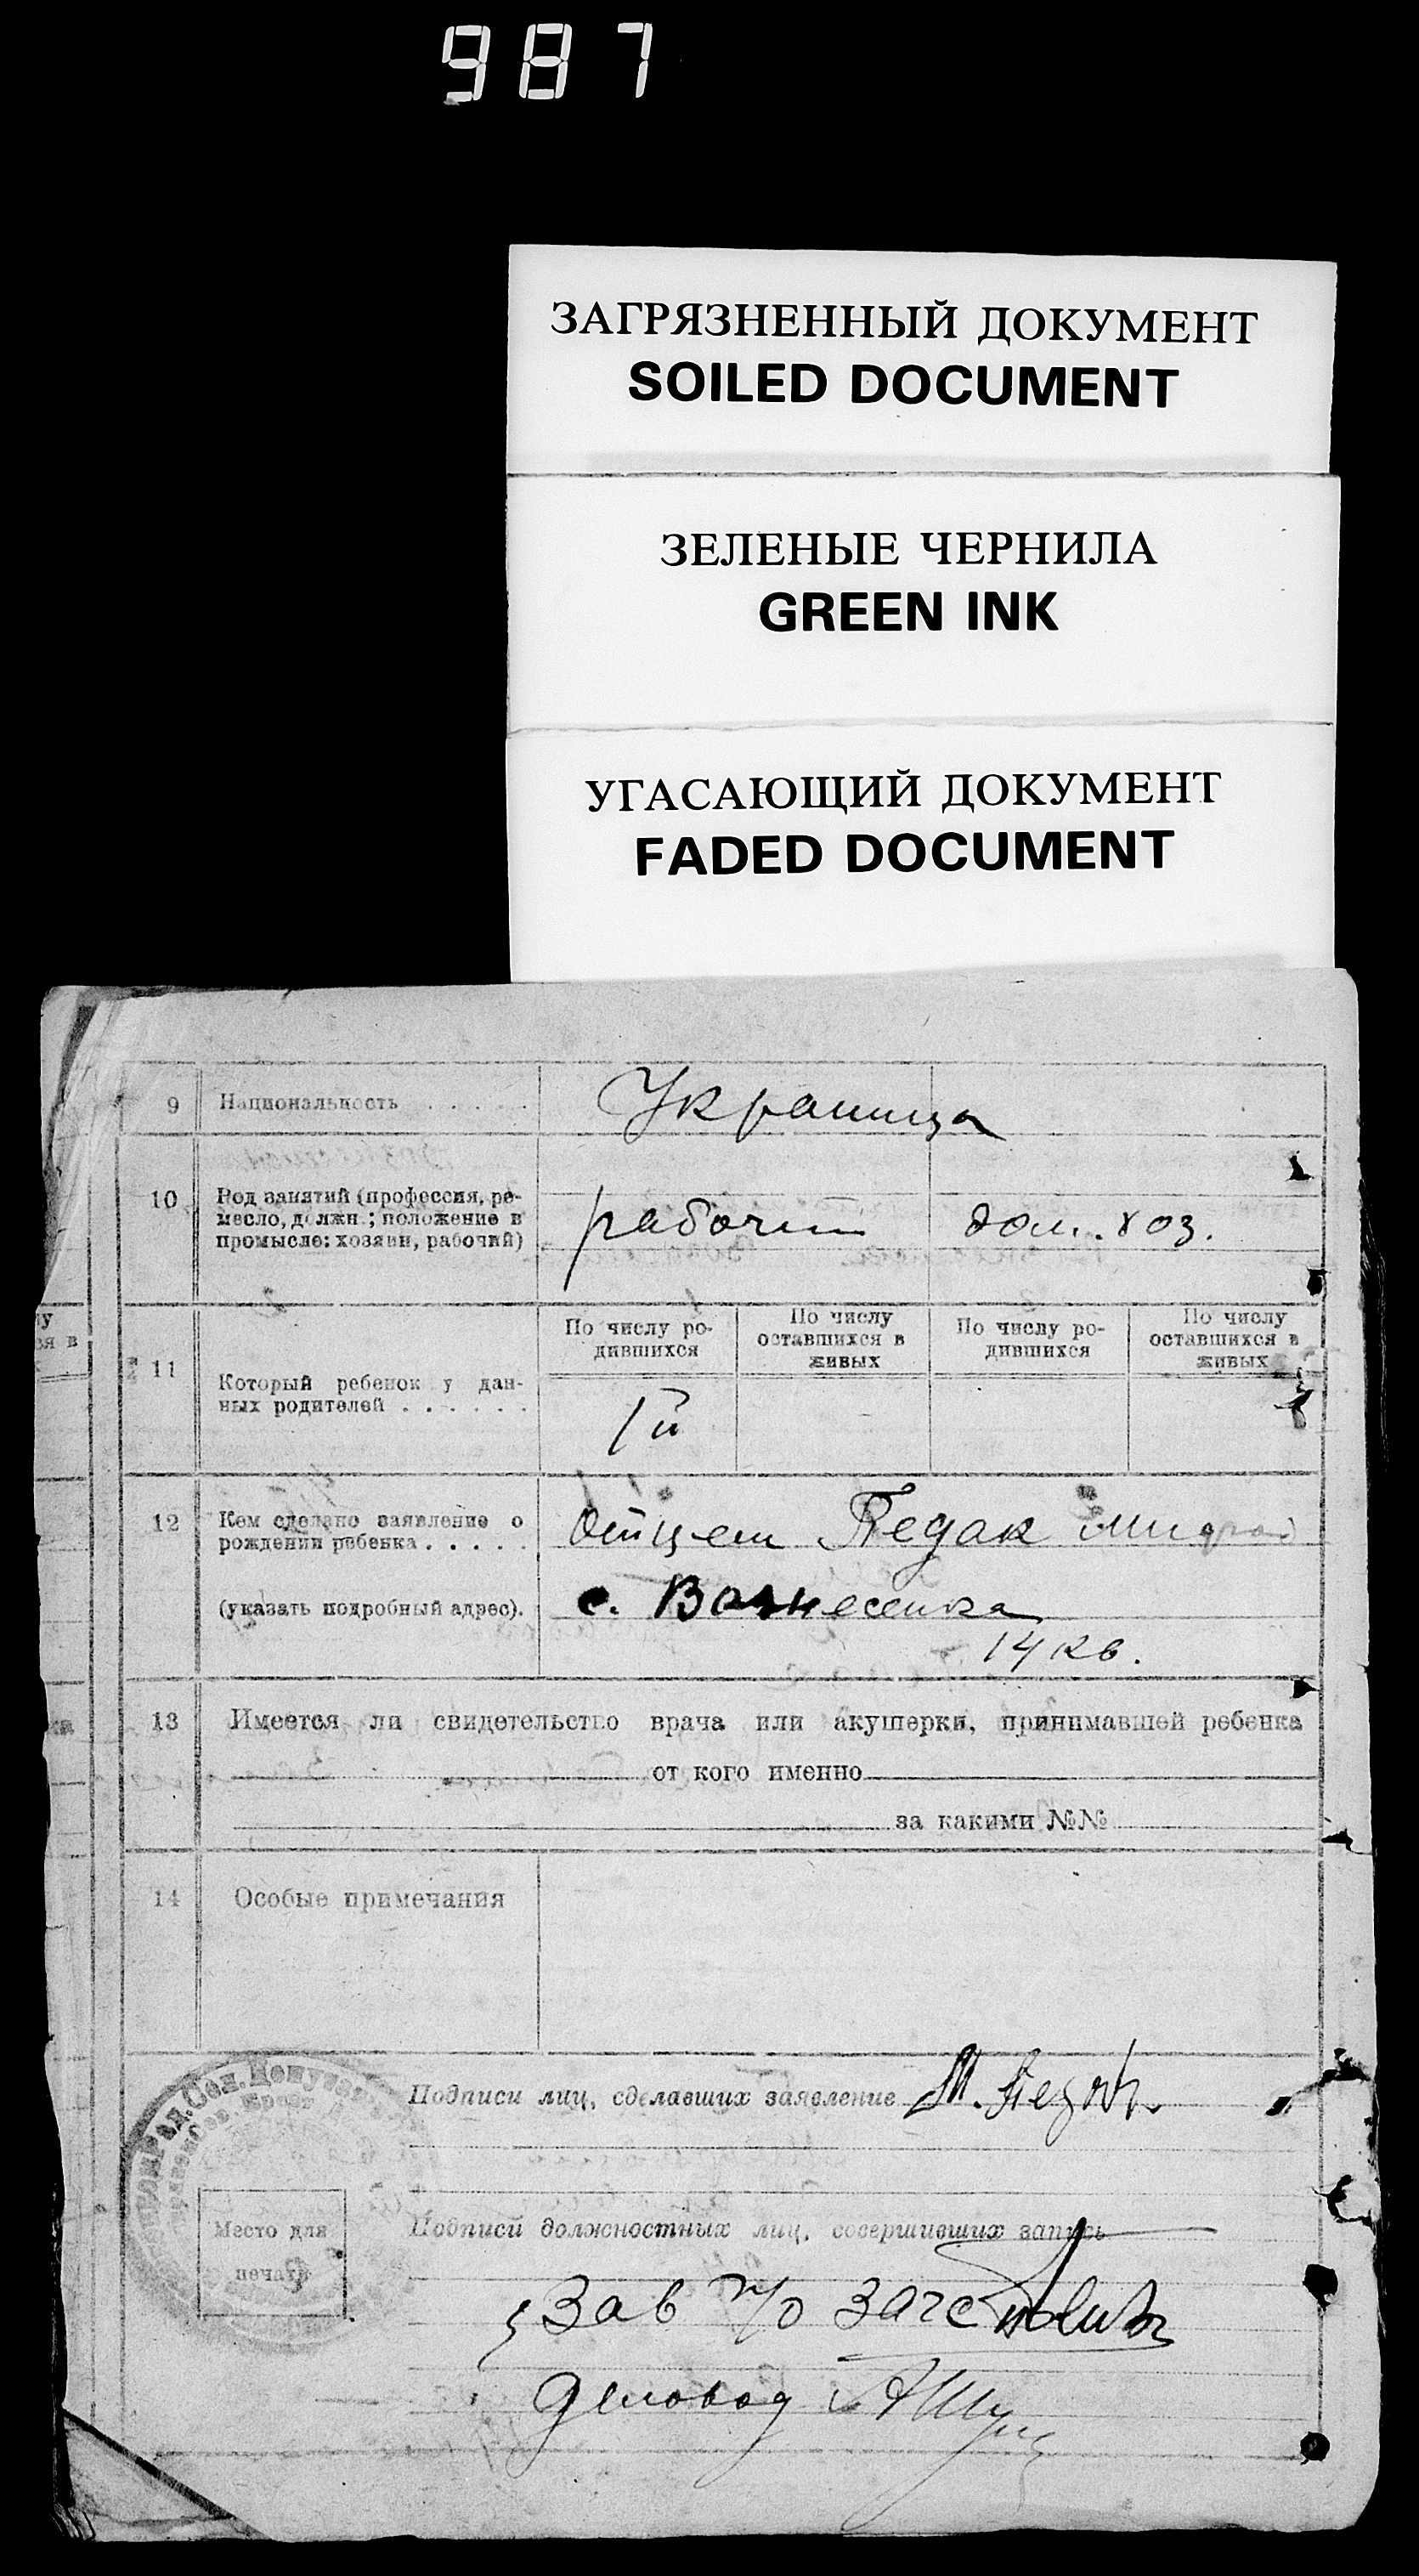 987
ЗАГРЯЗНЕННЫЙ ДОКУМЕНТ
SOILED DOCUMENT
ЗЕЛЕНЫЕ ЧЕРНИЛА
GREEN INK
УГАСАЮЩИЙ ДОКУМЕНТ
FADED DOCUMENT
9 Национальность . . . . . Украинца
10 Род занятий (профессия, ре-
месло, должн.; положение в
промысле: хозяин, рабочий)
рабочий дом. хоз.
По числу ро-
дившихся
По числу
оставшихся в
живых
По числу ро-
дившихся
По числу
оставшихся в
живых
11 Который ребенок у дан-
ных родителей . . . . . .
1й
12 Кем сделано заявление о
рождении ребенка . . . . .
Отцем Педак
(указать подробный адрес).
с. Вознесенка
14 кв.
13 Имеется ли свидетельство врача или акушерки, принимавшей ребенка
от кого именно
за какими №№
14 Особые примечания
Подписи лиц, сделавших заявление М. Педак
Место для
печати
Подписи должностных лиц, совершивших запись
Зав п/о загс
Деловод